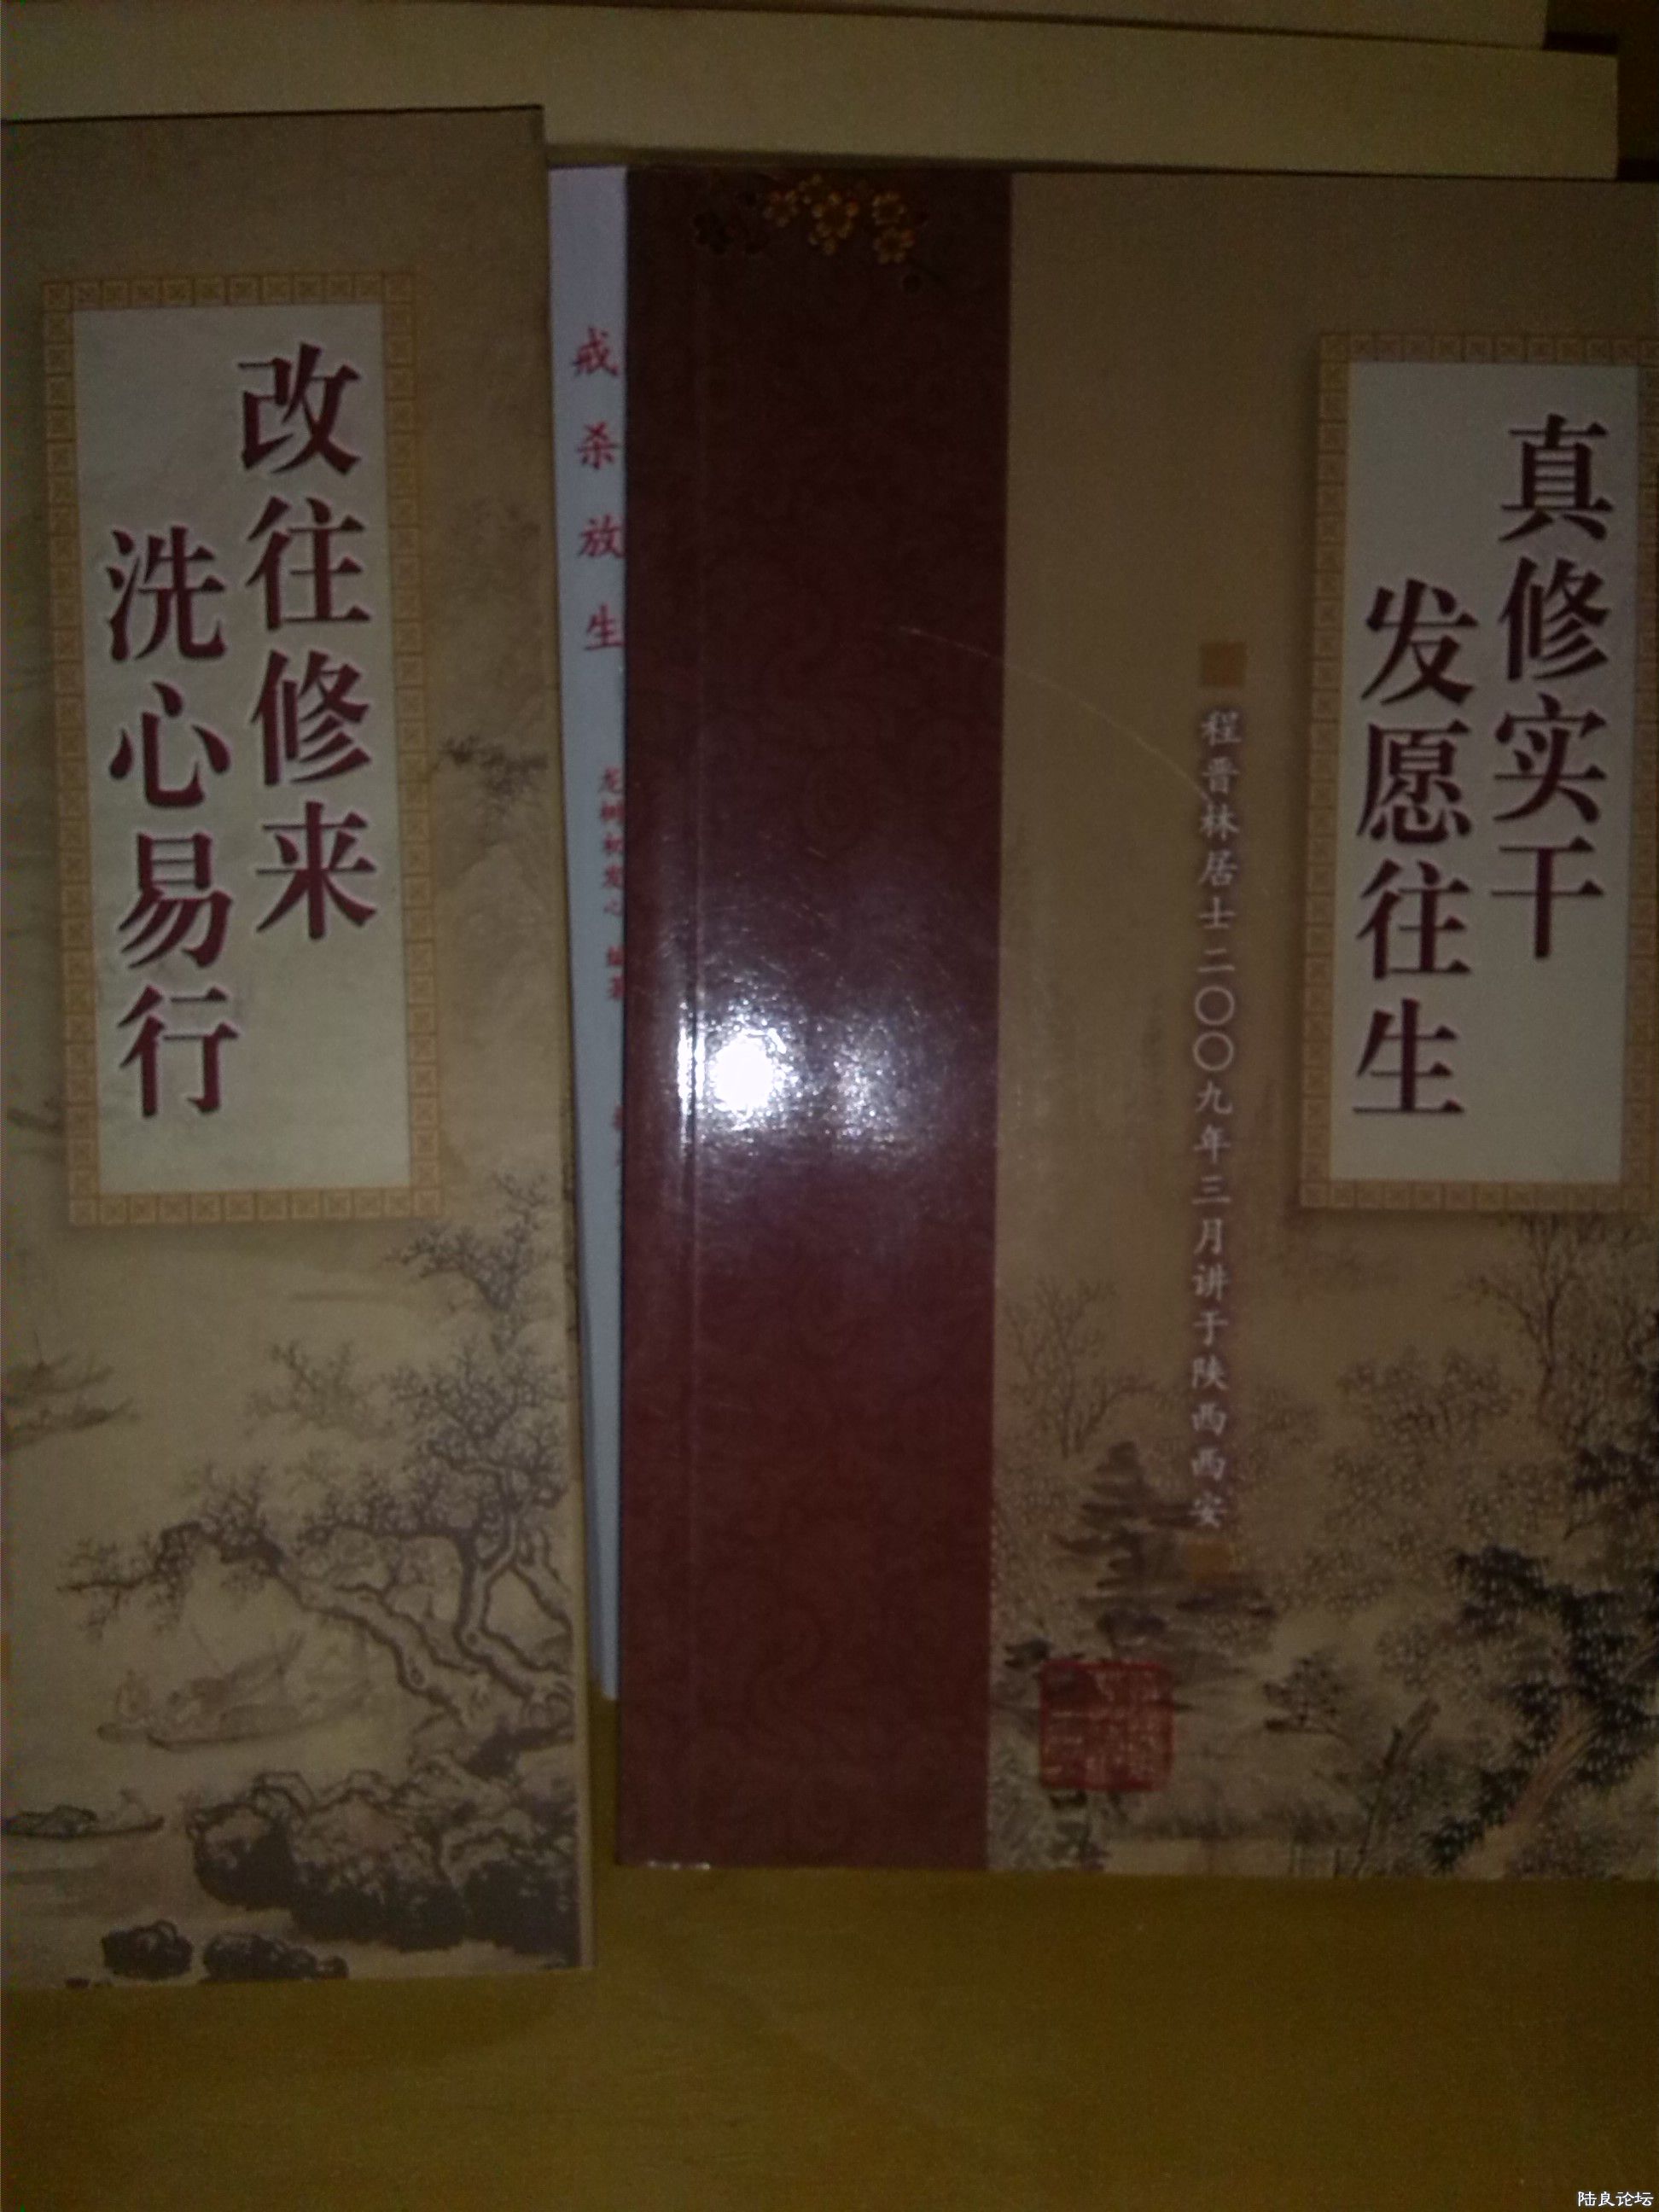 改往修来
洗心易行
戒杀放生
真修实干
发愿往生
程晋林居士二〇〇九年三月讲于陕西西安
陆良论坛